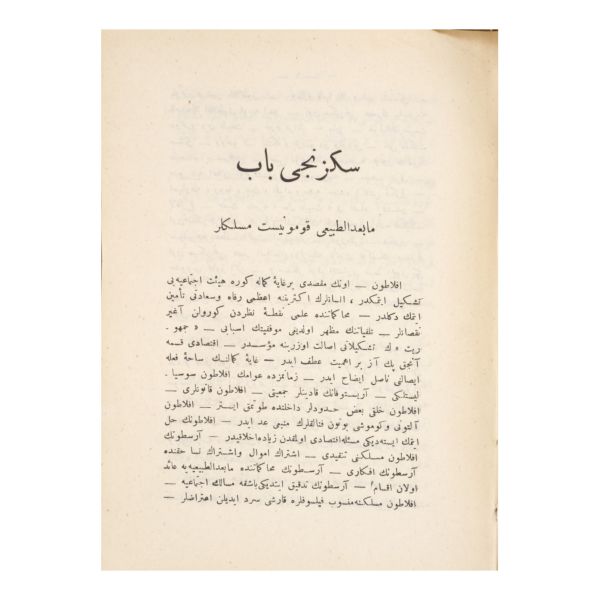 سكزنجی باب
مابعدالطبیعی قومونیست مسلكلر
افلاطون — اونك مقصدی بر غایۀ كماله كوره هیئت اجتماعیه‌یی
تشكیل ایتمكدر ، انسانلرك اكثریننه اعظمی رفاه وسعادتی تأمین
ایتمك دكلدر — محاكماتنده علمی نقطۀ نظردن كورولن آغیر
نقصانلر — تلقیاتنك مظهر اولدیغی موفقیتك اسبابی — « جمهو-
ریت » ك تشكیلاتی اصالت اوزرینه مؤسسدر — اقتصادی قسمه
آنجق پك آز بر اهمیت عطف ایدر — غایۀ كمالنك ساحۀ فعله
ایصالنی ناصل ایضاح ایدر — زمانمزده عوامك افلاطون سوسیا-
لیستلكی — آریستوفانك قادینلر جمعیتی — افلاطون قانونلری —
افلاطون خلقی بعض حدودلر داخلنده طوتمق ایستر — افلاطون
آلتونی وكوموشی بوتون فنالقلرك منبعی عد ایدر — افلاطونك حل
ایتمك ایسته‌دیكی مسئله اقتصادی اولمقدن زیاده اخلاقیدر — آرسطونك
افلاطون مسلكنی تنقیدی — اشتراك اموال واشتراك نسا حقنده
آرسطونك افكاری — آرسطونك محاكماتنده مابعدالطبیعیه‌یه عائد
اولان اقسام — آرسطونك تدقیق ایتدیكی باشقه مسالك اجتماعیه —
افلاطون مسلكنه منسوب فیلسوفلره قارشی سرد ایدیلن اعتراضلر —